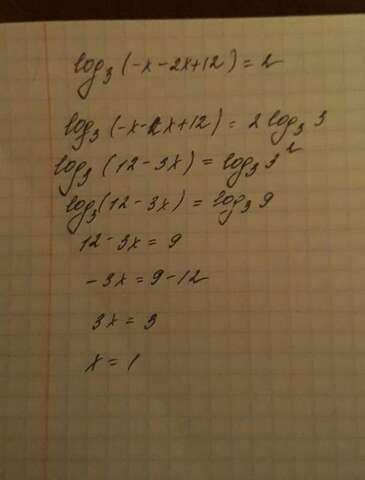 log₃(-x-2x+12)=2
log₃(-x-2x+12)=2log₃3
log₃(12-3x)=log₃3²
log₃(12-3x)=log₃9
12-3x=9
-3x=9-12
3x=3
x=1